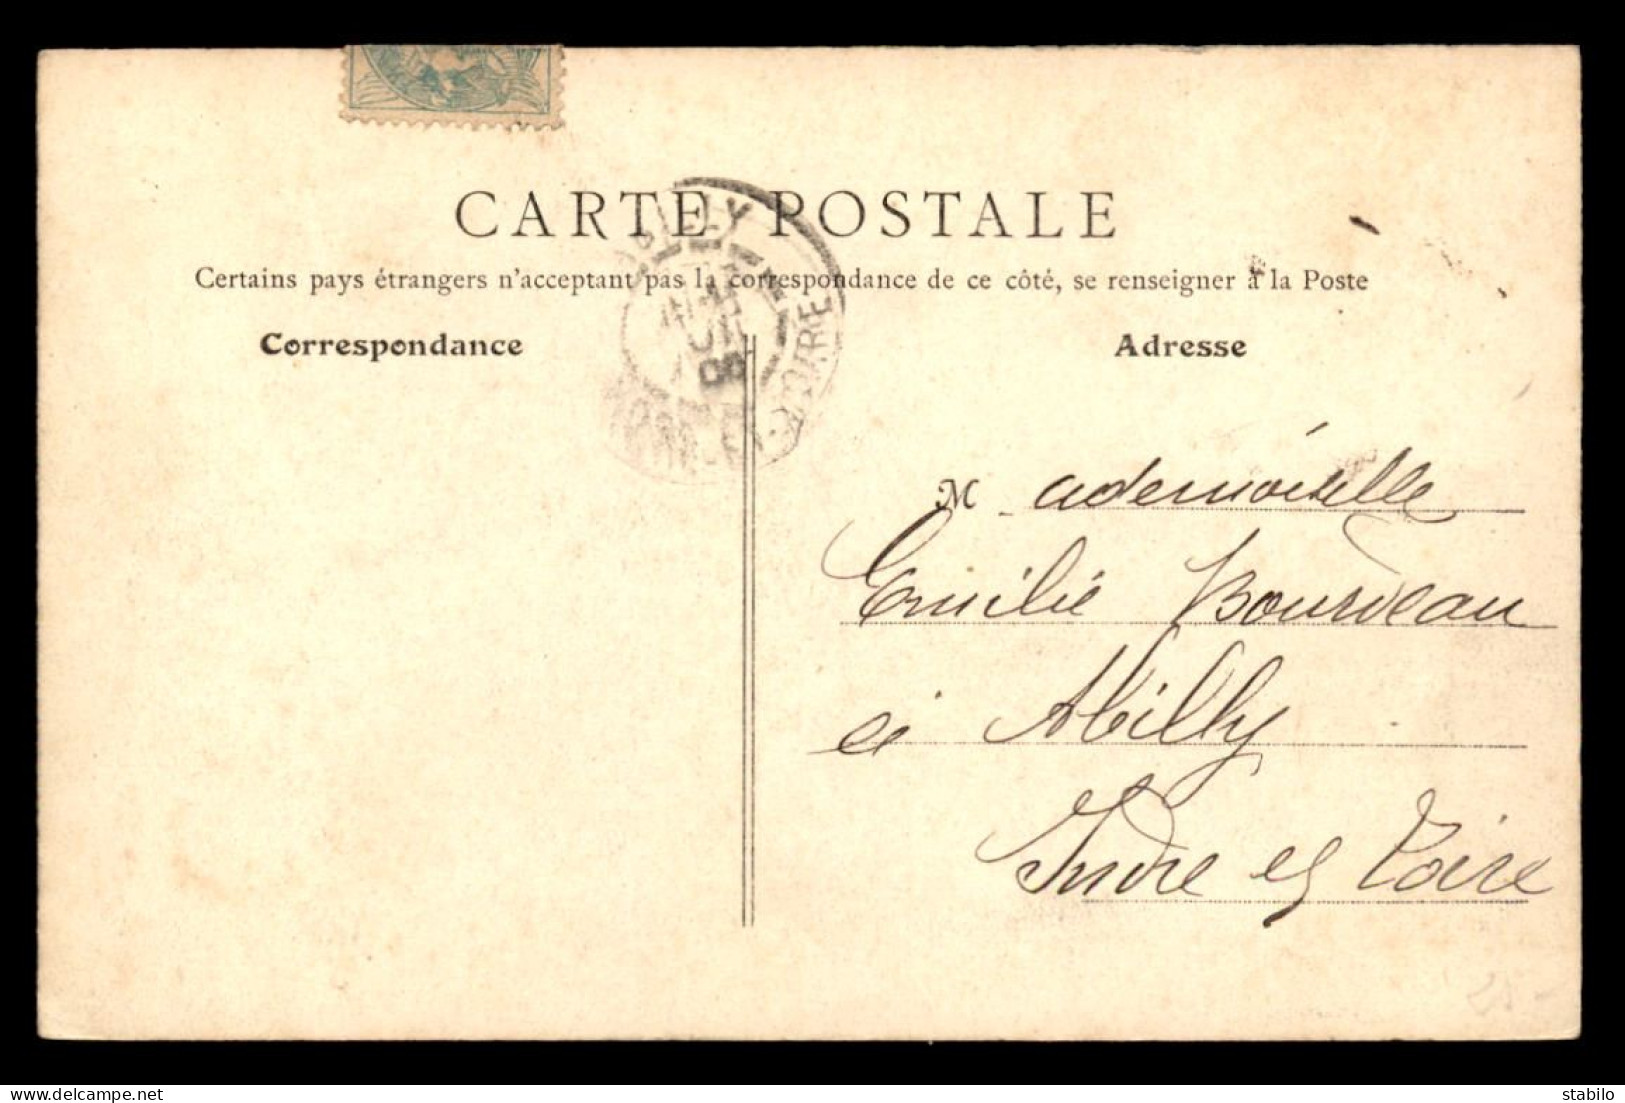 CARTE POSTALE
Certains pays étrangers n'acceptant pas la correspondance de ce côté, se renseigner à la Poste
Correspondance
Adresse
Mademoiselle
Emilie Bourdeau
à Abilly
Indre et Loire
ABILLY
INDRE-ET-LOIRE
08
delcampe.net
stabilo